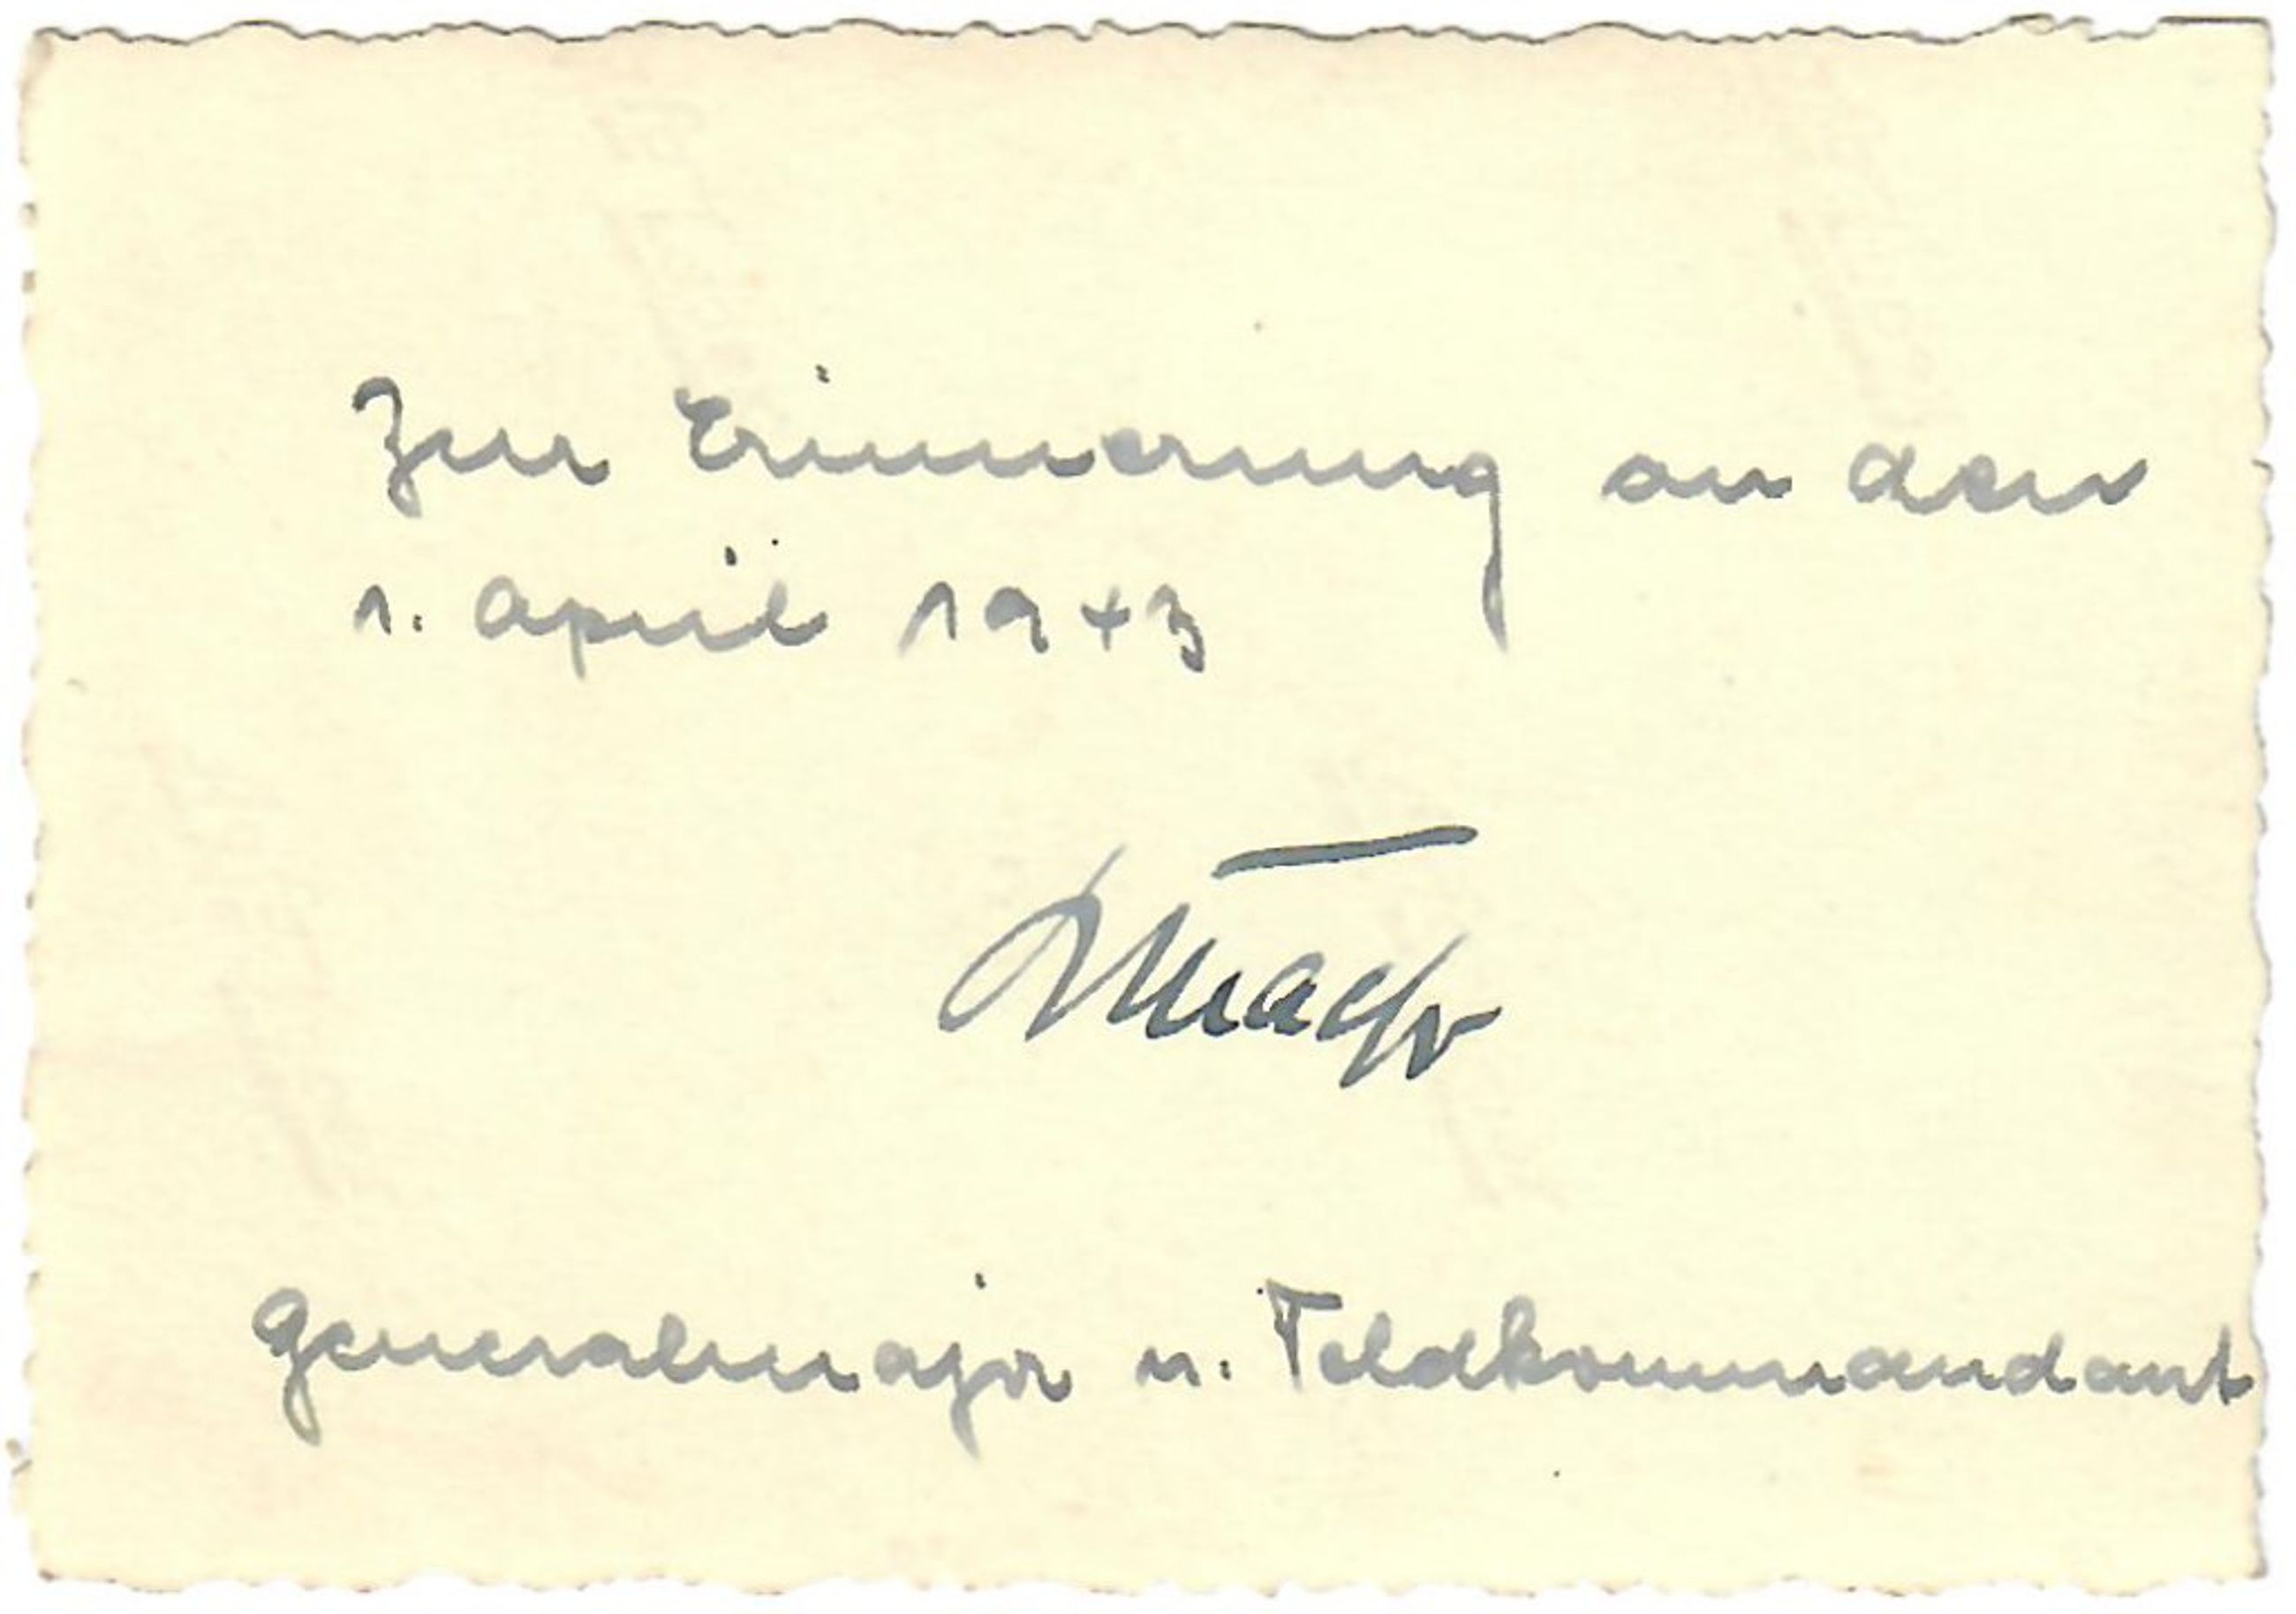 Zur Erinnerung an den
1. April 1943
Generalmajor u. Feldkommandant